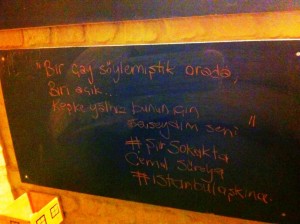 "Bir çay söylemiştik orada,
Biri açık..
Keşke yalnız bunun için
sevseydim seni "
#şiirsokakta
Cemal Süreya
#istanbulaşkına.